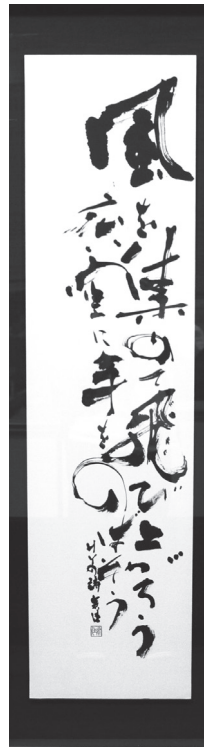 風を集めて飛び上がろう
秋空に手をのばそう